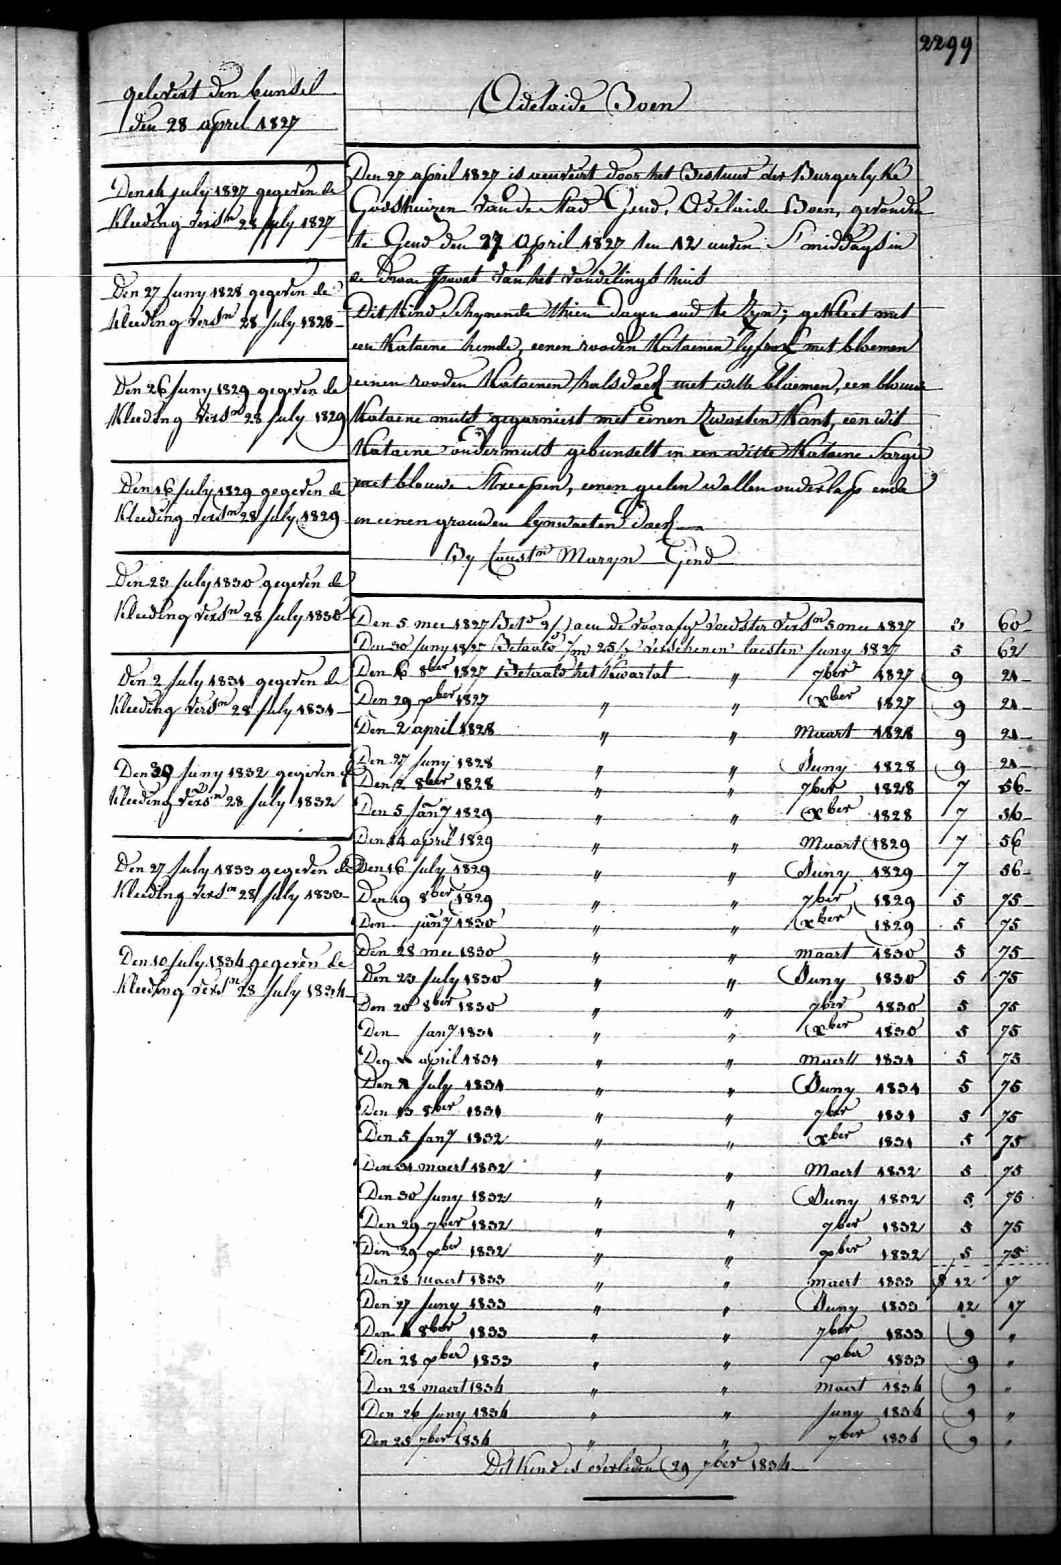 2299
gelevert den bunsel
den 28 april 1827
Den 14 july 1827 gegeven de
Kleeding versn 28 july 1827
Den 27 Juny 1828 gegeven de
Kleeding versn 28 July 1828
Den 26 Juny 1829 gegeven de
Kleeding versn 28 July 1829
Den 16 July 1829 gegeven de
Kleeding versn 28 july 1829
Den 23 July 1830 gegeven de
Kleeding versn 28 July 1830
Den 2 July 1831 gegeven de
Kleeding versn 28 July 1831
Den 30 Juny 1832 gegeven de
Kleeding versn 28 July 1832
Den 27 July 1833 gegeven de
Kleeding versn 28 July 1833
Den 10 July 1834 gegeven de
Kleeding versn 28 July 1834
Adelaide Boen
Den 27 april 1827 is aenveirt door het Bestuur der Burgerlyke
Godshuizen van de Stad Gend, Adelaide Boen, gevonden
te Gend den 27 April 1827 ten 12 uuren 's middags in
de draa van het vondelings huis
Dit kind schynende thien dagen oud te zyn; gekleet met
een Kataene hemde, eenen rooden Kataenen lyfrok met bloemen
eenen rooden Kataenen halsdoek met witte bloemen, een blouwe
Kataene muts gegarniert met eenen Zwarten Kant, een wit
Kataene ondermuts gebunselt in een witte Kataene Sargie
met blouwe Streepen, eenen geelen wollen onderlap ende
in eenen grouwen lynwaeten doek
By Constn Maryn Gend
Den 5 mei 1827 Bet aen de voorafge voedster versn 5 mei 1827 3 60
Den 30 Juny 1827 Betaald 25 verschenen laesten Juny 1827 5 62
Den 16 8ber 1827 Betaald het Kwartal " 7ber 1827 9 21
Den 29 xber 1827 " " xber 1827 9 21
Den 2 april 1828 " " Maart 1828 9 21
Den 27 Juny 1828 " " Juny 1828 9 21
Den 2 8ber 1828 " " 7ber 1828 7 56
Den 5 Jany 1829 " " xber 1828 7 56
Den 14 april 1829 " " Maart 1829 7 56
Den 16 July 1829 " " Juny 1829 7 56
Den 19 8ber 1829 " " 7ber 1829 5 75
Den jany 1830 " " xber 1829 5 75
Den 28 mei 1830 " " maart 1830 5 75
Den 23 July 1830 " " Juny 1830 5 75
Den 20 8ber 1830 " " 7ber 1830 5 75
Den Jany 1831 " " xber 1830 5 75
Den april 1831 " " maert 1831 5 75
Den 2 July 1831 " " Juny 1831 5 75
Den 13 8ber 1831 " " 7ber 1831 5 75
Den 5 Jany 1832 " " xber 1831 5 75
Den 31 maert 1832 " " Maert 1832 5 75
Den 30 Juny 1832 " " Juny 1832 5 75
Den 29 7ber 1832 " " 7ber 1832 5 75
Den 29 xber 1832 " " xber 1832 5 75
Den 28 maert 1833 " " maert 1833 12 17
Den 27 Juny 1833 " " Juny 1833 12 17
Den 4 8ber 1833 " " 7ber 1833 9 "
Den 28 xber 1833 " " xber 1833 9 "
Den 28 maert 1834 " " maert 1834 9 "
Den 26 Juny 1834 " " Juny 1834 9 "
Den 25 7ber 1834 " " 7ber 1834 9 "
Dit kind is overleden 29 7ber 1834